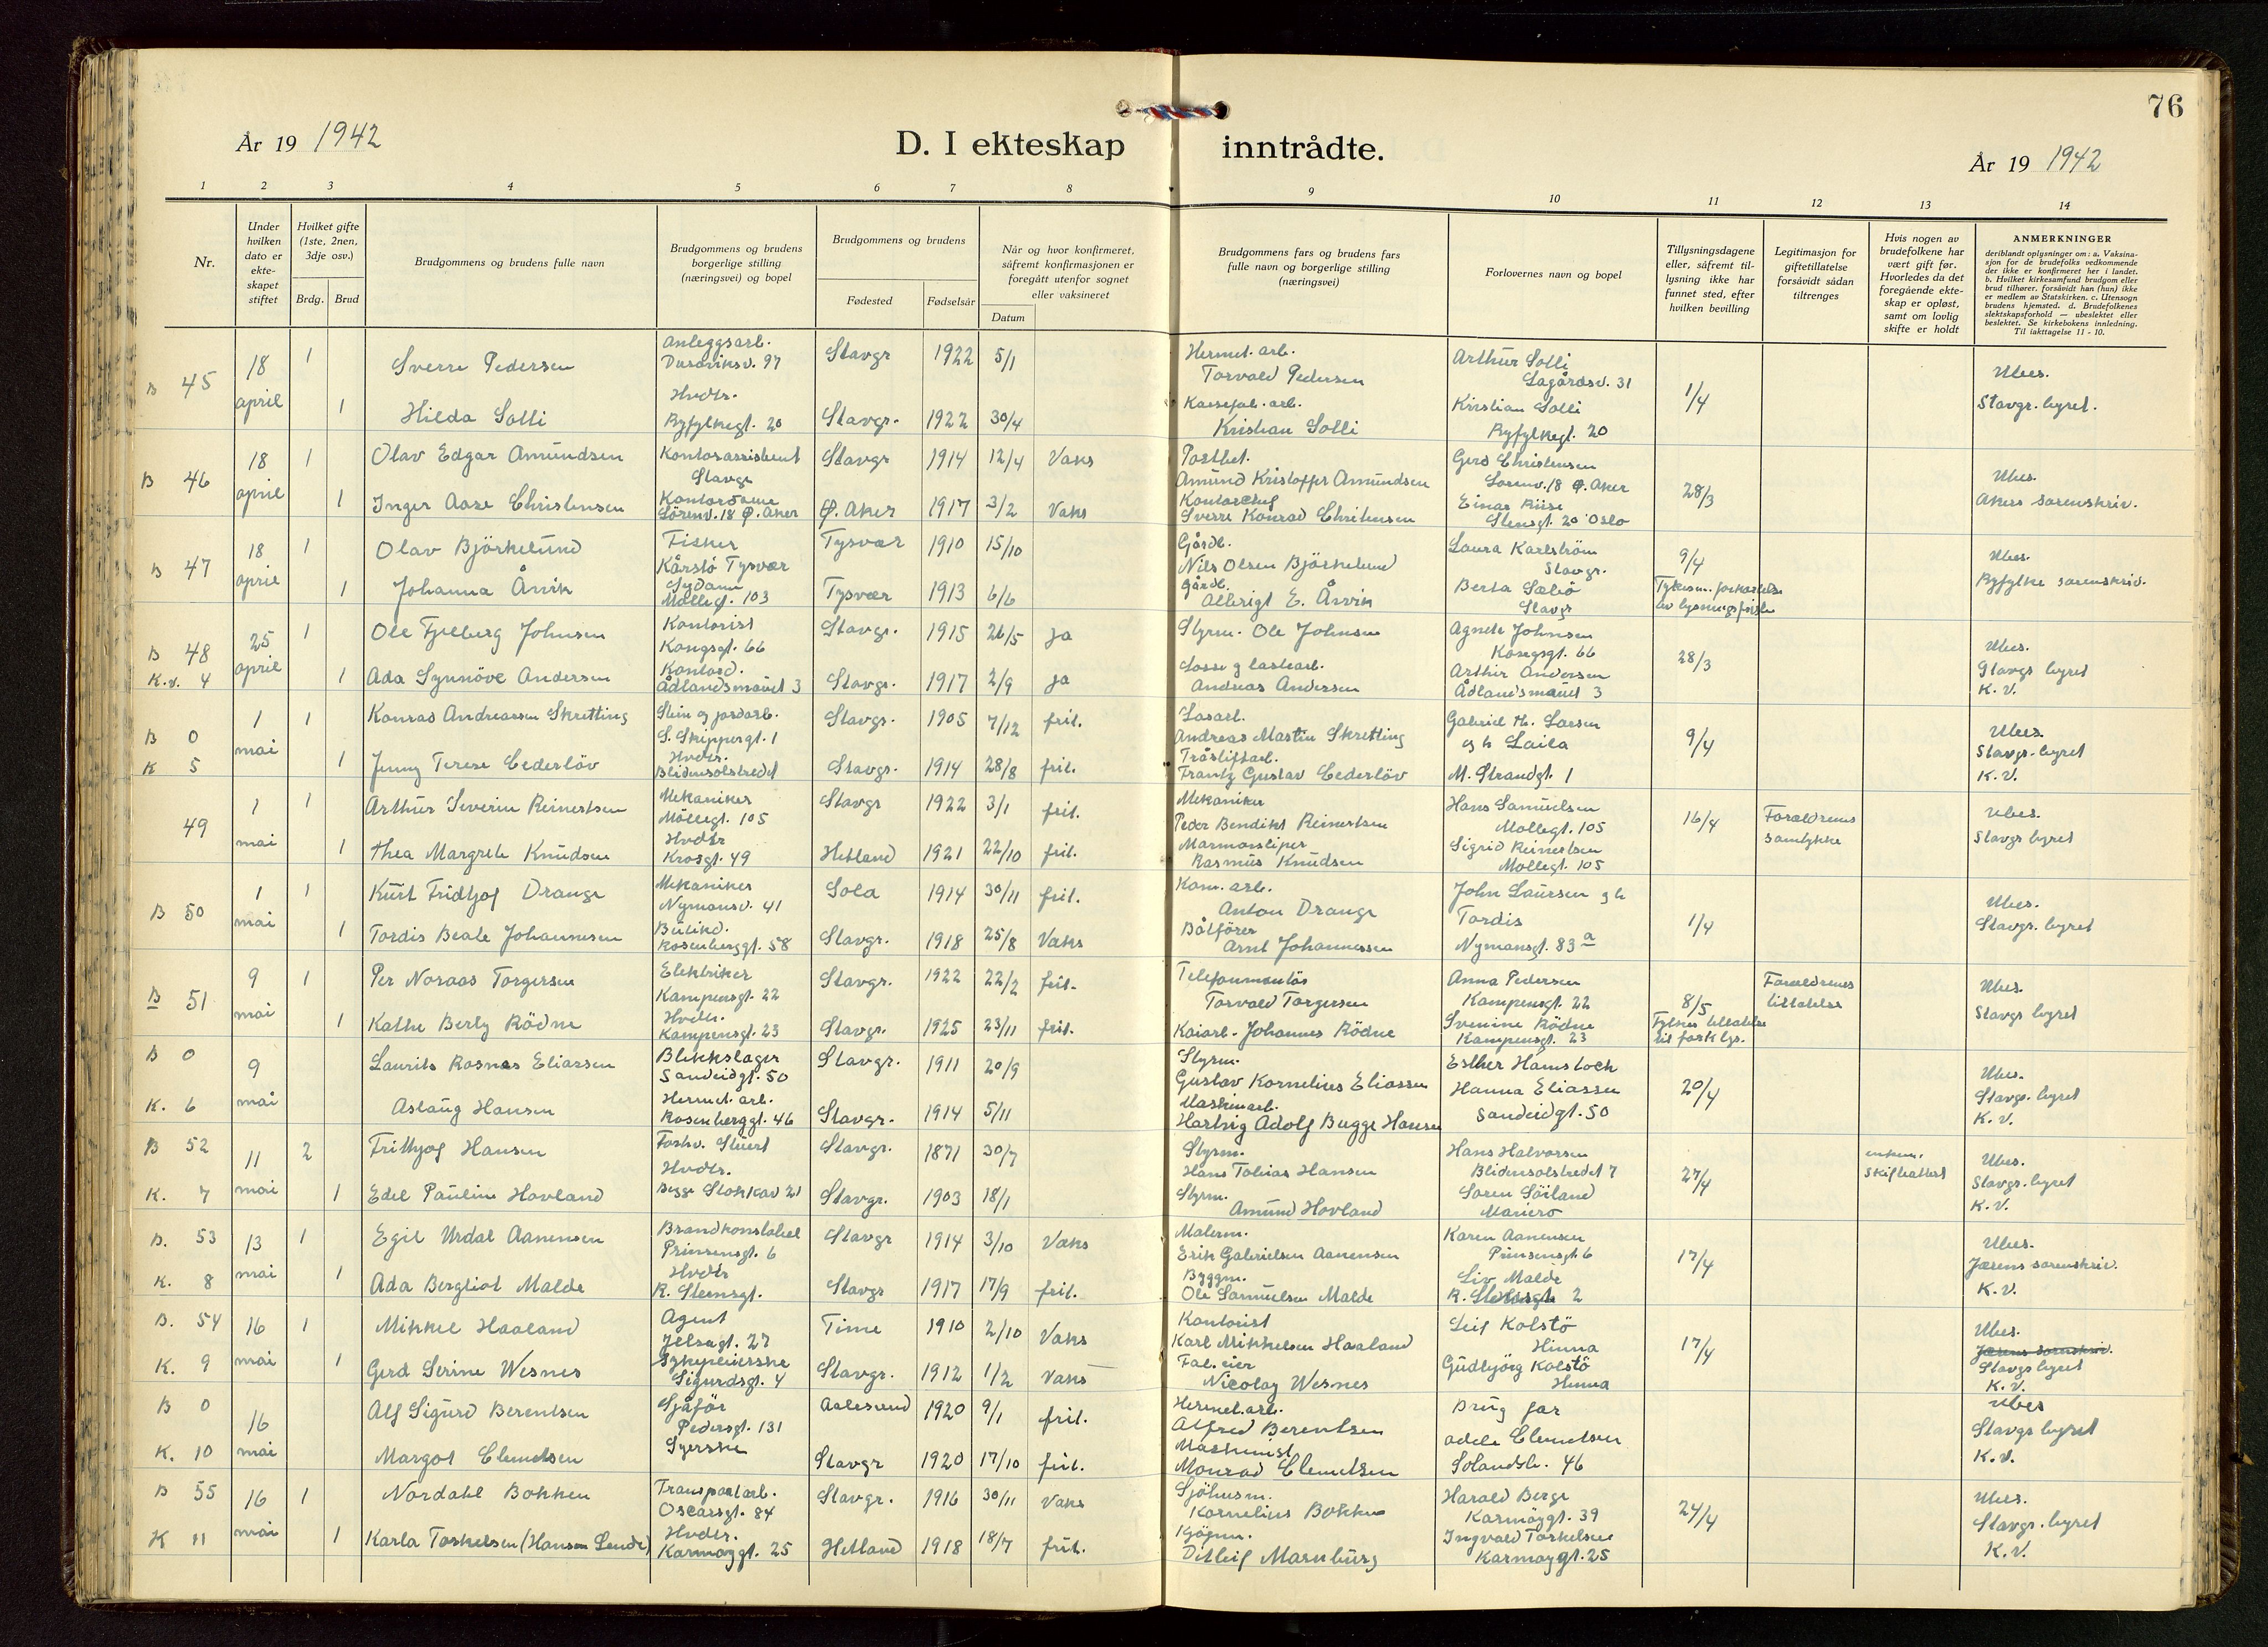 76
År 19 1942
D. I ekteskap inntrådte.
År 19 1942
1 2 3 4 5 6 7 8 9 10 11 12 13 14
Nr.
Under hvilken dato er ekte-skapet stiftet
Hvilket gifte (1ste, 2nen, 3dje osv.)
Brdg. Brud
Brudgommens og brudens fulle navn
Brudgommens og brudens borgerlige stilling (næringsvei) og bopel
Brudgommens og brudens
Fødested Fødselsår
Når og hvor konfirmeret, såfremt konfirmasjonen er foregått utenfor sognet eller vaksineret
Datum
Brudgommens fars og brudens fars fulle navn og borgerlige stilling (næringsvei)
Forlovernes navn og bopel
Tillysningsdagene eller, såfremt til-lysning ikke har funnet sted, efter hvilken bevilling
Legitimasjon for giftetillatelse forsåvidt sådan tiltrenges
Hvis nogen av brudefolkene har vært gift før. Hvorledes da det foregående ekte-skap er opløst, samt om lovlig skifte er holdt
ANMERKNINGER
deriblandt oplysninger om: a. Vaksina-sjon for de brudefolks vedkommende der ikke er konfirmeret her i landet. b. Hvilket kirkesamfund brudgom eller brud tilhører, forsåvidt han (hun) ikke er medlem av Statskirken. c. Utensogn brudens hjemsted. d. Brudefolkenes slektskapsforhold — ubeslektet eller beslektet. Se kirkebokens innledning. Til iakttagelse 11 - 10.
B 45 18 april 1 Sverre Pedersen Anleggsarb. Dusaviksv. 97 Stavgr 1922 5/1 Hermet. arb. Torvald Pedersen Arthur Solli Lagårdsv. 31 1/4 Ubes.
1 Hilda Solli Husdtr. Ryfylkegt. 20 Stavgr. 1922 30/4 Kassefab. arb. Kristian Solli Kristian Solli Ryfylkegt. 20 Stavgr. byret.
B 46 18 april 1 Olav Edgar Amundsen Kontorassistent Stavgr Stavgr 1914 12/4 Vaks Postbet. Amund Kristoffer Amundsen Gerd Christensen Lorenv. 18 Ø. Aker 28/3 Ubes.
1 Inger Aase Christensen Kontordame Lörenv. 18 Ø. Aker Ø. Aker 1917 3/2 Vaks Kontorchef Sverre Konrad Chritensen Einar Riise Stensgt. 20 Oslo Akers sorenskriv.
B 47 18 april 1 Olav Björkelund Fisker Kårstö Tysvær Tysvær 1910 15/10 Gårdb. Nils Olsen Björkelund Laura Karlström Stavgr. 9/4 Ubes.
1 Johanna Årvik Sydame Möllegt. 103 Tysvær 1913 6/6 Gårdb. Albrigt E. Årvik Berta Sælö Stavgr Fylkesm. forkortelse av lysningsfristen Ryfylke sorenskriv.
B 48 25 april 1 Ole Fjelberg Johnsen Kontorist Kongsgt. 66 Stavgr. 1915 26/5 ja Styrm. Ole Johnsen Agnete Johnsen Kongsgt. 66 28/3 Ubes.
K.v. 4 1 Ada Synnöve Andersen Kontord. Ådlandsmauet 3 Stavgr. 1917 2/9 ja Losse og lastearb. Andreas Andersen Arthur Andersen Ådlandsmauet 3 Stavgr byret K.V.
B 0 1 mai 1 Konrad Andreassen Skretting Stein og jordarb. S. Skippergt. 1 Stavgr. 1905 7/12 frit. Losarb. Andreas Martin Skretting Gabriel Th. Larsen og h Laila 9/4 Ubes.
K 5 1 Jenny Terese Cederlöv Husdtr. Blidensolstredet Stavgr. 1914 28/8 frit. Tråsliftarb. Frantz Gustav Cederlöv M. Strandgt. 1 Stavgr. byret K.V.
49 1 mai 1 Arthur Severin Reinertsen Mekaniker Möllegt. 105 Stavgr 1922 3/1 frit. Mekaniker Peder Bendikt Reinertsen Hans Samuelsen Mollegt. 105 16/4 Foreldrenes samtykke Ubes.
1 Thea Margrete Knudsen Husdtr Krosgt. 49 Hetland 1921 22/10 frit. Marmorsliper Rasmus Knudsen Sigrid Reinertsen Mollegt. 105 Stavgr byret
B 50 1 mai 1 Kurt Fridtjof Drange Mekaniker Nymansv. 41 Sola 1914 30/11 frit. Kom. arb. Anton Drange John Laursen og h Tordis 1/4 Ubes.
1 Tordis Beate Johannesen Butikd. Rosenberggt. 58 Stavgr. 1918 25/8 Vaks Båtförer Arnt Johannessen Nymansgt. 83 a Stavgr. byret
B 51 9 mai 1 Per Noraas Torgersen Elektriker Kampensgt. 22 Stavgr. 1922 22/2 frit. Telefonmontör Torvald Torgersen Anna Pedersen Kampensgt. 22 8/5 Foreldrenes tillatelse Ubes.
1 Kathe Berly Rödne Husdtr. Kampensgt. 23 Stavgr. 1925 23/11 frit. Kaiarb. Johannes Rödne Svenine Rödne Kampensgt. 23 Fylkes tillatelse til fork lys. Stavgr byret
B 0 9 mai Laurits Rosnes Eliassen Blikkslager Sandeidgt. 50 Stavgr. 1911 20/9 Styrm. Gustav Kornelius Eliassen Esther Hamsloch 20/4 Ubes.
K. 6 Aslaug Hansen Hermet. arb. Rosenberggt. 46 Stavgr. 1914 5/11 Maskinarb. Hartvig Adolf Bugge Hansen Hanna Eliassen Sandeidgt. 50 Stavgr. byret K.V.
B 52 11 mai 2 Frithjof Hansen Forhv. Stuert Stavgr. 1871 30/7 Styrm. Hans Tobias Hansen Hans Halvorsen Blidensolstredet 7 27/4 enkem. Skifteattest Ubes.
K. 7 1 Edel Pauline Hovland Husdtr. Begge Stokkav 21 Stavgr. 1903 18/1 Styrm. Amund Hovland Soren Söiland Mariero Stavgr. byret K.V.
B. 53 13 mai 1 Egil Urdal Aanensen Brandkonstabel Prinsensgt. 6 Stavgr 1914 3/10 Vaks Malerm. Erik Gabrielsen Aanensen Karen Aanensen Prinsensgt. 6 17/4 Ubes.
K. 8 1 Ada Bergliot Malde Husdtr R. Steensgt. Stavgr 1917 17/9 frit. Byggm. Ole Samuelsen Malde Liv Malde R. Steensgt 2 Jærens sorenskriv. K.V.
B. 54 16 mai 1 Mikkel Haaland Agent Jelsagt. 27 Time 1910 2/10 Vaks Kontorist Karl Mikkelsen Haaland Leif Kolstö Hinna 17/4 Ubes.
K. 9 1 Gerd Serine Wesnes Sykepleierske Sigurdsgt. 4 Stavgr. 1912 1/2 Vaks Fab. eier Nicolay Wesnes Gudbjörg Kolstö Hinna Jærens sorenskriv. Stavgr byret K.V.
B 0 16 mai Alf Sigurd Berentsen Sjåför Pedersgt. 131 Aalesund 1920 9/1 frit. Hermet. arb. Alfred Berentsen Brug far Ubes
K. 10 Margot Clemetsen Syerske Stavgr 1920 17/10 frit. Maskinist Monrad Clemetsen Adele Clemetsen Solandsb. 46 Stavgr byret K.V.
B 55 16 mai 1 Nordahl Bokken Transportarb. Oscarsgt. 84 Stavgr. 1916 30/11 Vaks Sjöhusm. Kornelius Bokken Harald Berge Karmøygt. 39 24/4 Ubes.
K 11 1 Karla Torkelsen (Hansen Lende) Husdtr. Karmøygt. 25 Hetland 1918 18/7 frit. Kjöpm. Ditleif Marnburg Ingvald Torkelsen Karmøygt. 25 Stavgr. byret K.V.